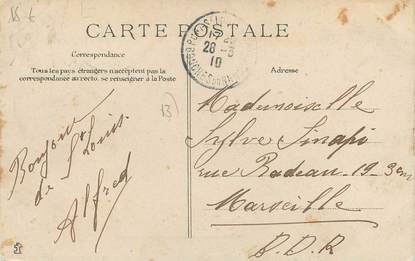 15 €
CARTE POSTALE
Correspondance
Tous les pays étrangers n'acceptent pas la
correspondance au recto. se renseigner à la Poste
Adresse
28
10
13
Bonjour
de St
Louis.
Alfred
Mademoiselle
Sylve Sinapi
rue Radeau 19-3em
Marseille
B.D.R